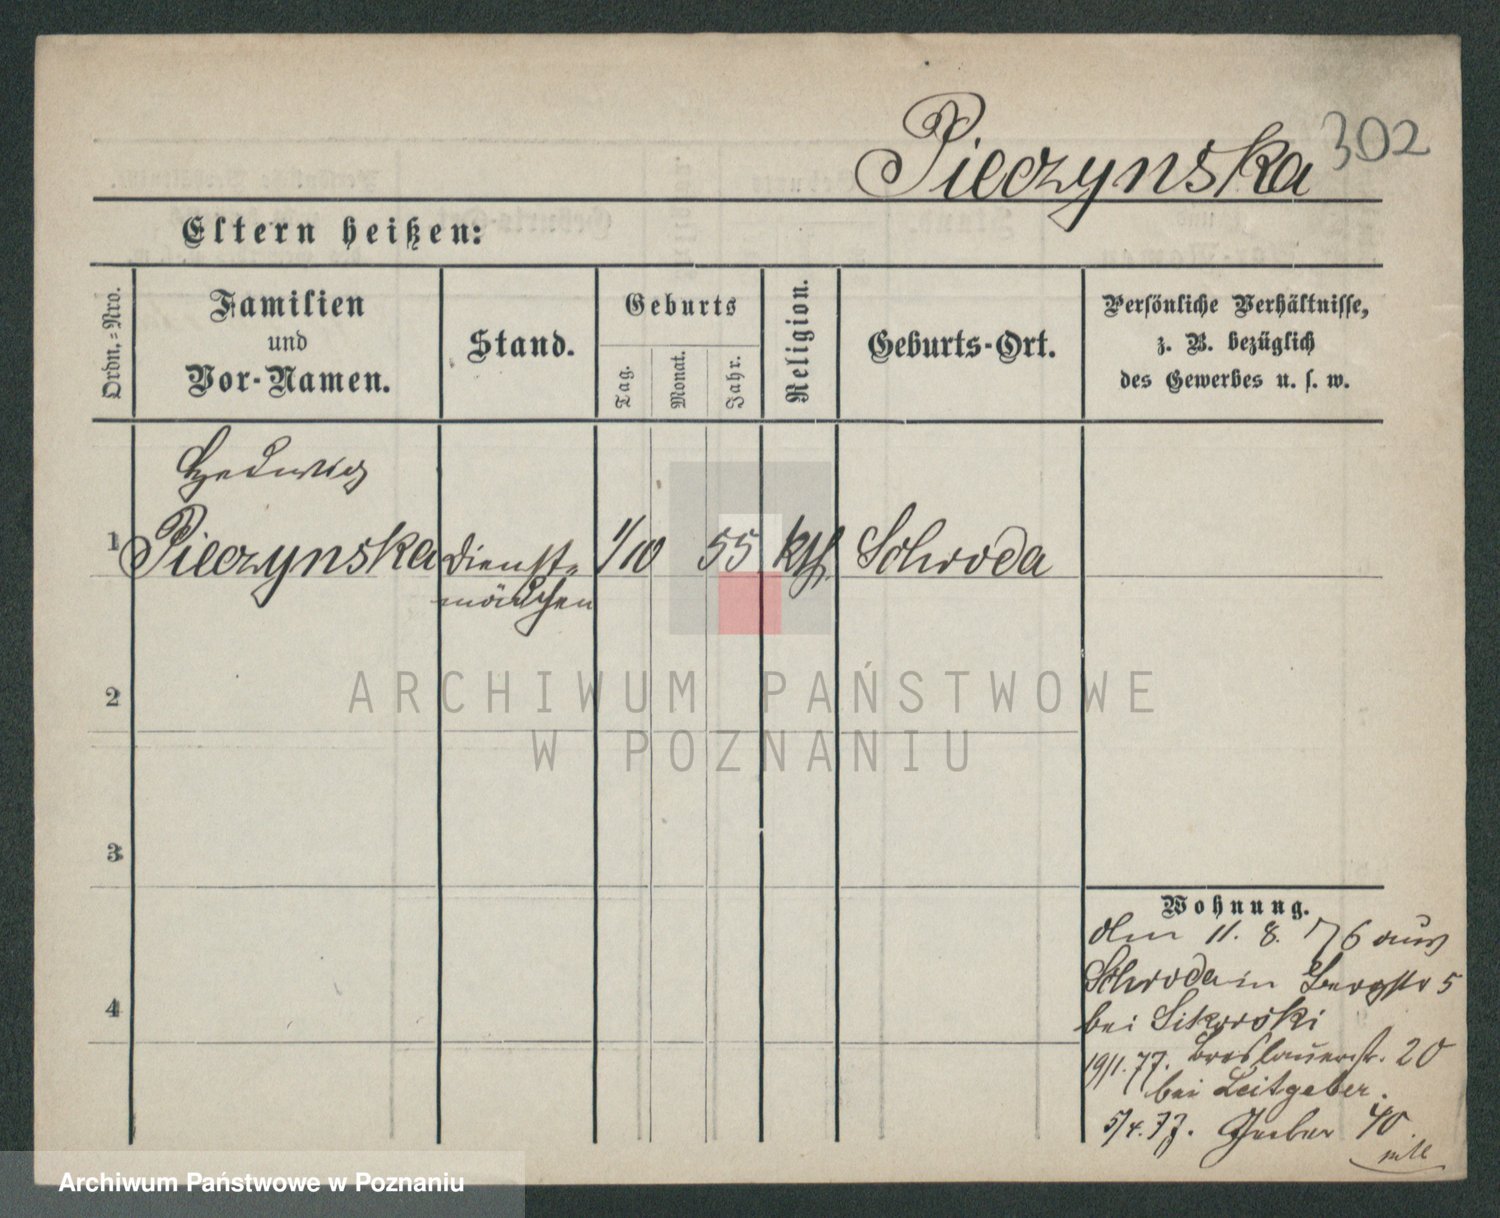 Pieczynska 302
Eltern heißen:
Ordn.=Nro.
Familien
und
Vor-Namen.
Stand.
Geburts
Tag.
Monat.
Jahr.
Religion.
Geburts-Ort.
Persönliche Verhältnisse,
z. B. bezüglich
des Gewerbes u. s. w.
Hedwig
1 Pieczynska Dienst= 1/10 55 kth Schroda
mädchen
2
3
4
Wohnung.
den 11. 8. 76 aus
Schroda in Bergstr 5
bei Sikorski
19/1. 77. Breslauerstr. 20
bei Leitgeber.
5/4. 77. 40
ARCHIWUM PAŃSTWOWE
W POZNANIU
Archiwum Państwowe w Poznaniu